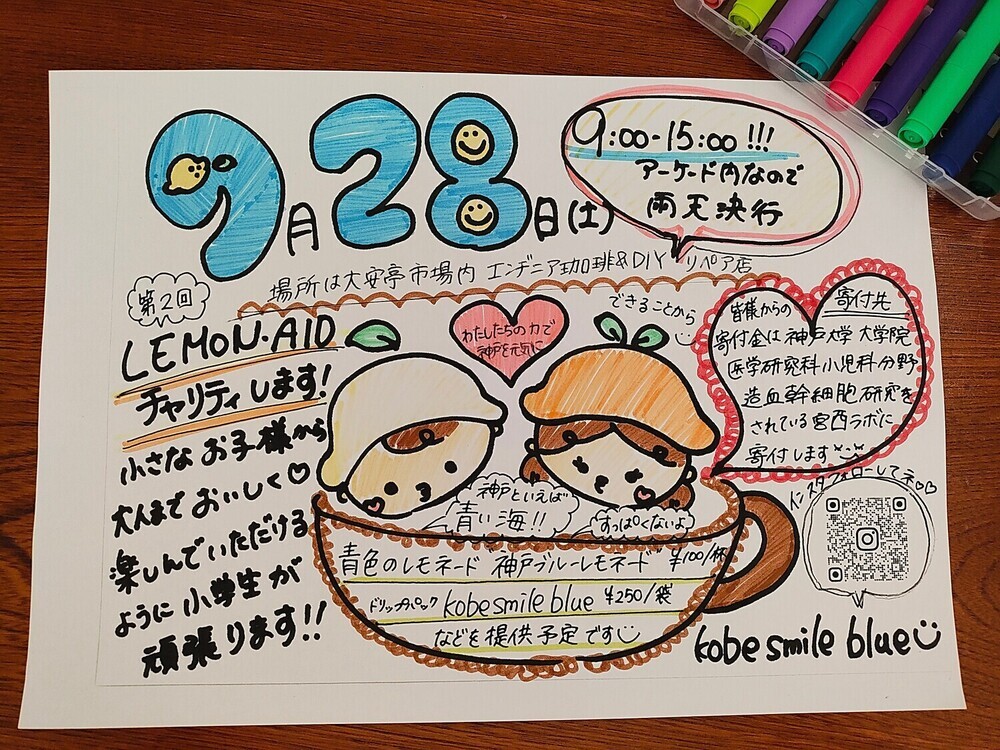 9月28日(土)
9:00-15:00!!!
アーケード内なので
雨天決行
場所は大安亭市場内 エンヂニア珈琲&DIYリペア店
第2回
LEMON・AID
チャリティします!
小さなお子様から
大人までおいしく♡
楽しんでいただける
ように小学生が
頑張ります!!
わたしたちの力で
神戸を元気に
できることから
皆様からの
寄付先
寄付金は神戸大学大学院
医学研究科小児科分野
造血幹細胞研究を
されている宮西ラボに
寄付します
神戸といえば
青い海!!
すっぱくないよ
青色のレモネード 神戸ブルーレモネード ¥100/杯
ドリップパック kobe smile blue ¥250/袋
などを提供予定です
インスタフォローしてネ♡♡
kobe smile blue